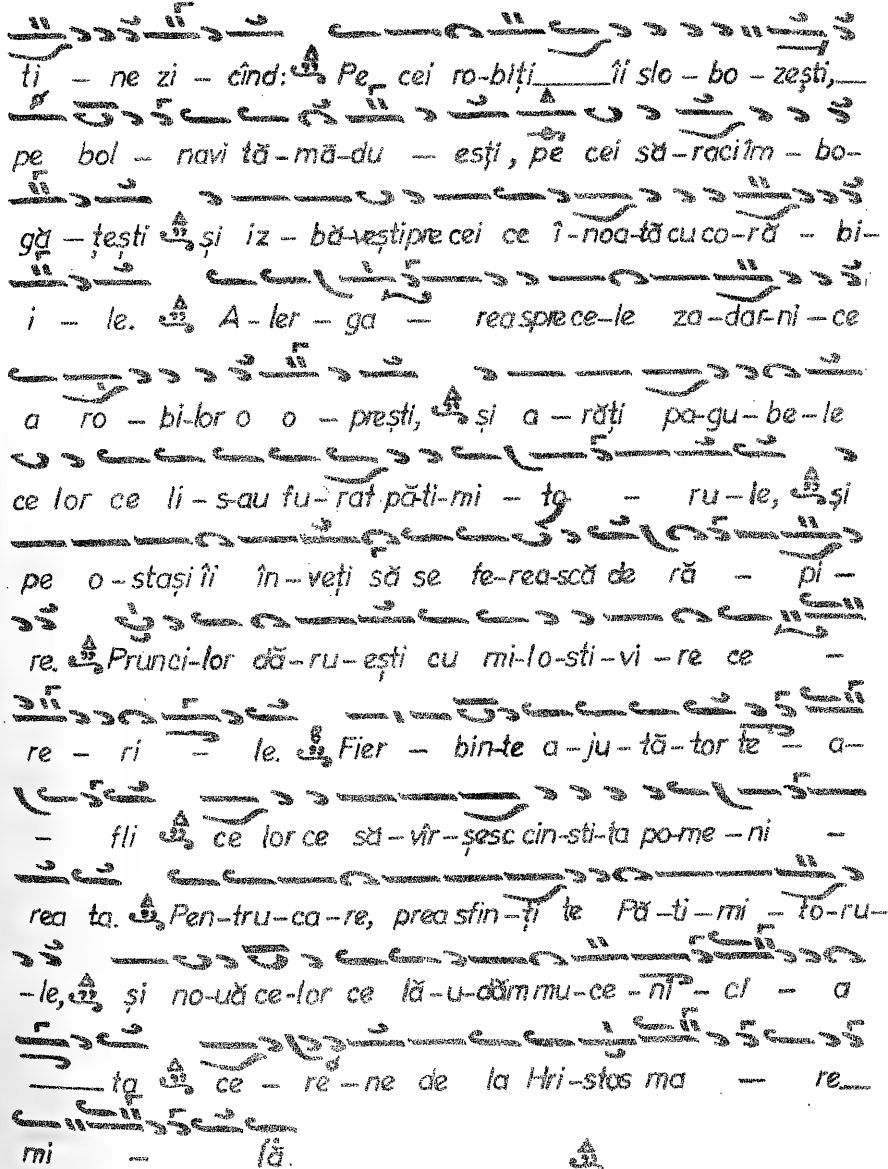 ti – ne zi – cînd: Pe cei ro-biți îi slo – bo – zești,
pe bol – navi tă-mă-du – ești, pe cei să-raci îm – bo-
gă – țești și iz – bă-vești pre cei ce î-noa-tă cu co-ră – bi-
i – le. A-ler – ga – rea spre ce-le za-dar-ni-ce
a ro – bi-lor o o – prești, și a – răți pa-gu-be-le
ce lor ce li-s-au fu-rat pă-ti-mi – to – ru-le, și
pe o-stași îi în-veți să se fe-rea-scă de ră – pi –
re. Prunci-lor dă-ru-ești cu mi-lo-sti-vi-re ce –
re – ri – le. Fier – bin-te a-ju-tă-tor te – a-
– fli ce lor ce să-vîr-șesc cin-sti-ta po-me-ni –
rea ta. Pen-tru-ca-re, prea sfin-ți te Pă-ti-mi – to-ru-
-le, și no-uă ce-lor ce lă-u-dăm mu-ce-ni – ci – a
ta ce – re-ne de la Hri-stos ma – re
mi – lă.